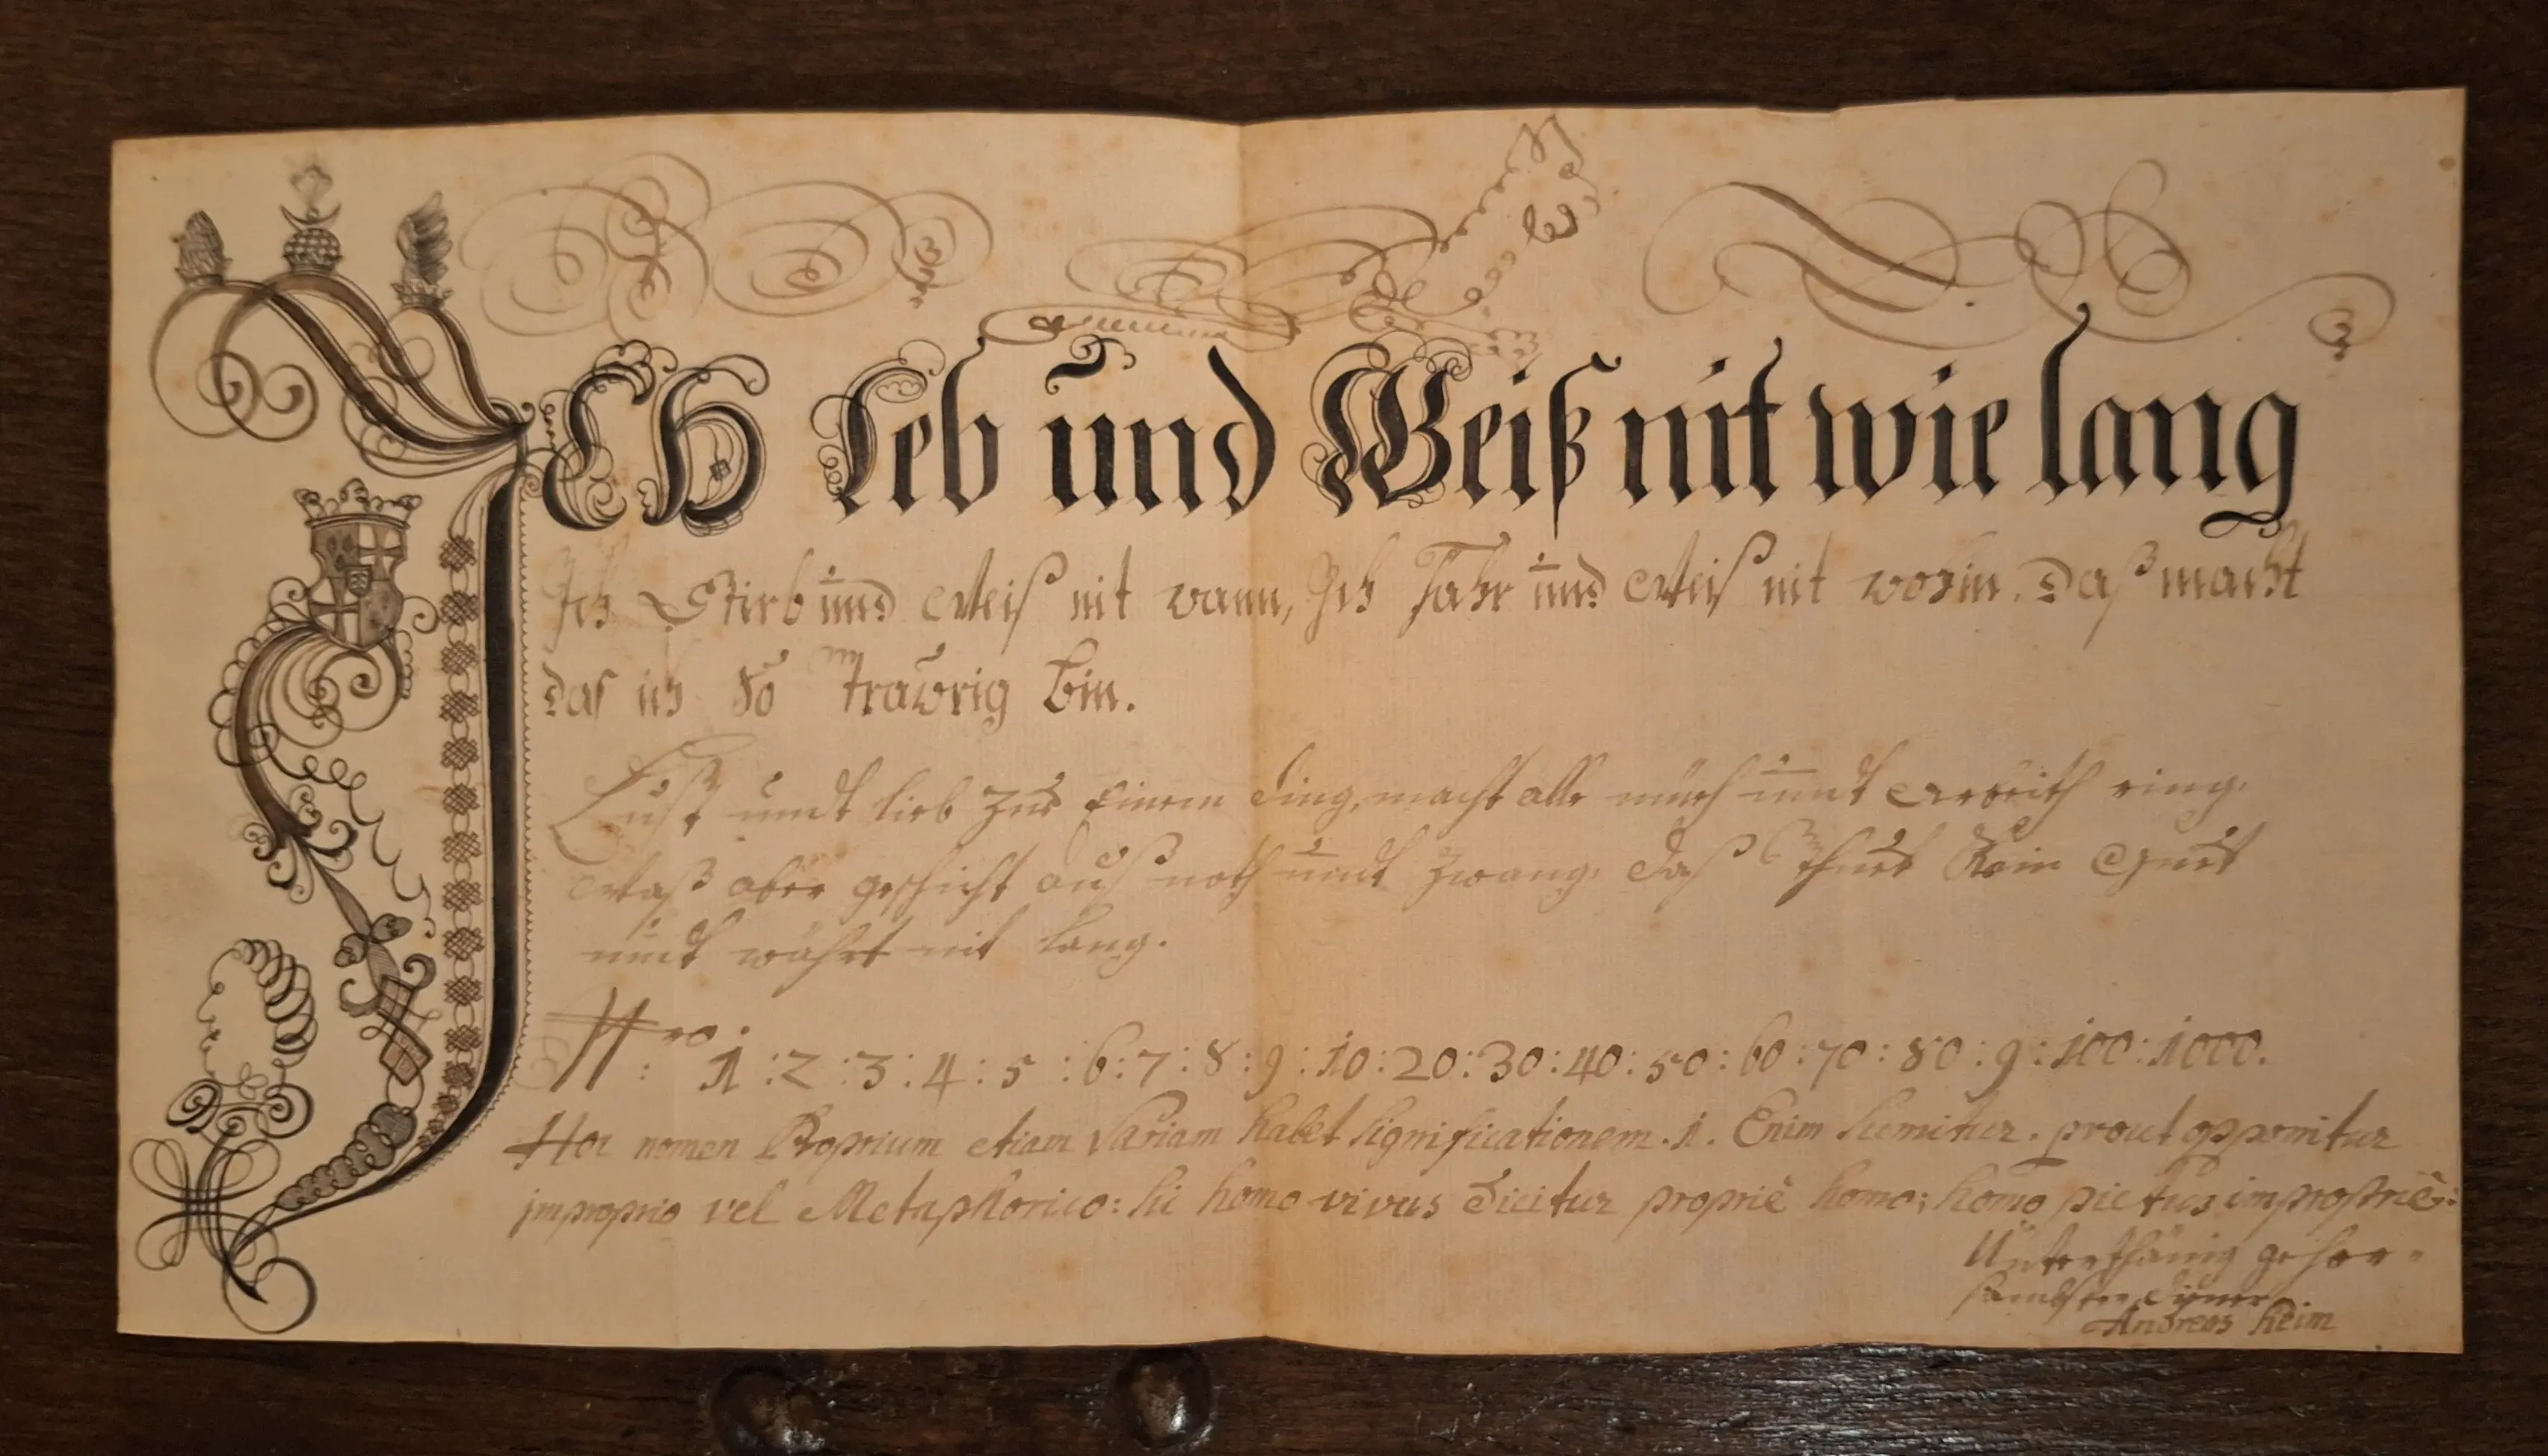 ICH Leb und Weiß nit wie lang
Ich Stirb und Weiß nit wann, Ich Fahr und Weiß nit wohin. Daß macht
das ich so traurig bin.
Lust undt lieb zue Einem ding, macht alle müeh undt Arbeith ring.
Waß aber geschicht auß noth undt zwang, daß thuet Kein Guet
undt währt nit lang.
Nro. 1 : 2 : 3 : 4 : 5 : 6 : 7 : 8 : 9 : 10 : 20 : 30 : 40 : 50 : 60 : 70 : 80 : 9 : 100 : 1000.
Hoc nomen Proprium etiam Variam habet significationem. 1. Enim sumitur. prout opponitur
improprio vel Metaphorico: sic homo vivus dicitur propriè homo; homo pictus impropriè:
Unterthänig gehor-
sambster diener
Andreas Heim